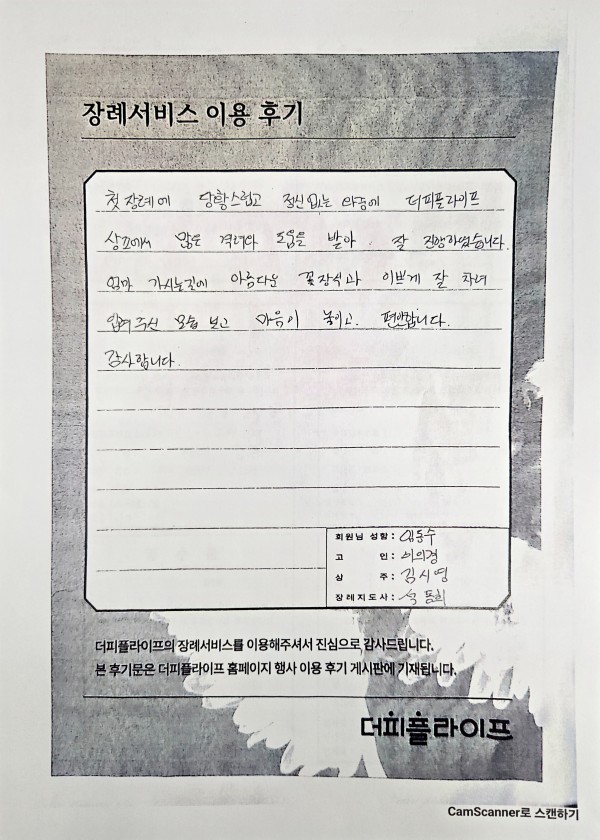 장례서비스 이용 후기
첫 장례에 당황스럽고 정신 없는 와중에 더피플라이프
상조에서 많은 격려와 도움을 받아 잘 진행하였습니다.
엄마 가시는길에 아름다운 꽃장식과 이쁘게 잘 차려
입혀 주신 모습 보고 마음이 놓이고. 편안합니다.
감사합니다.
회원님 성함:
고 인:
상 주: 김시영
장례지도사:
더피플라이프의 장례서비스를 이용해주셔서 진심으로 감사드립니다.
본 후기문은 더피플라이프 홈페이지 행사 이용 후기 게시판에 기재됩니다.
더피플라이프
CamScanner로 스캔하기